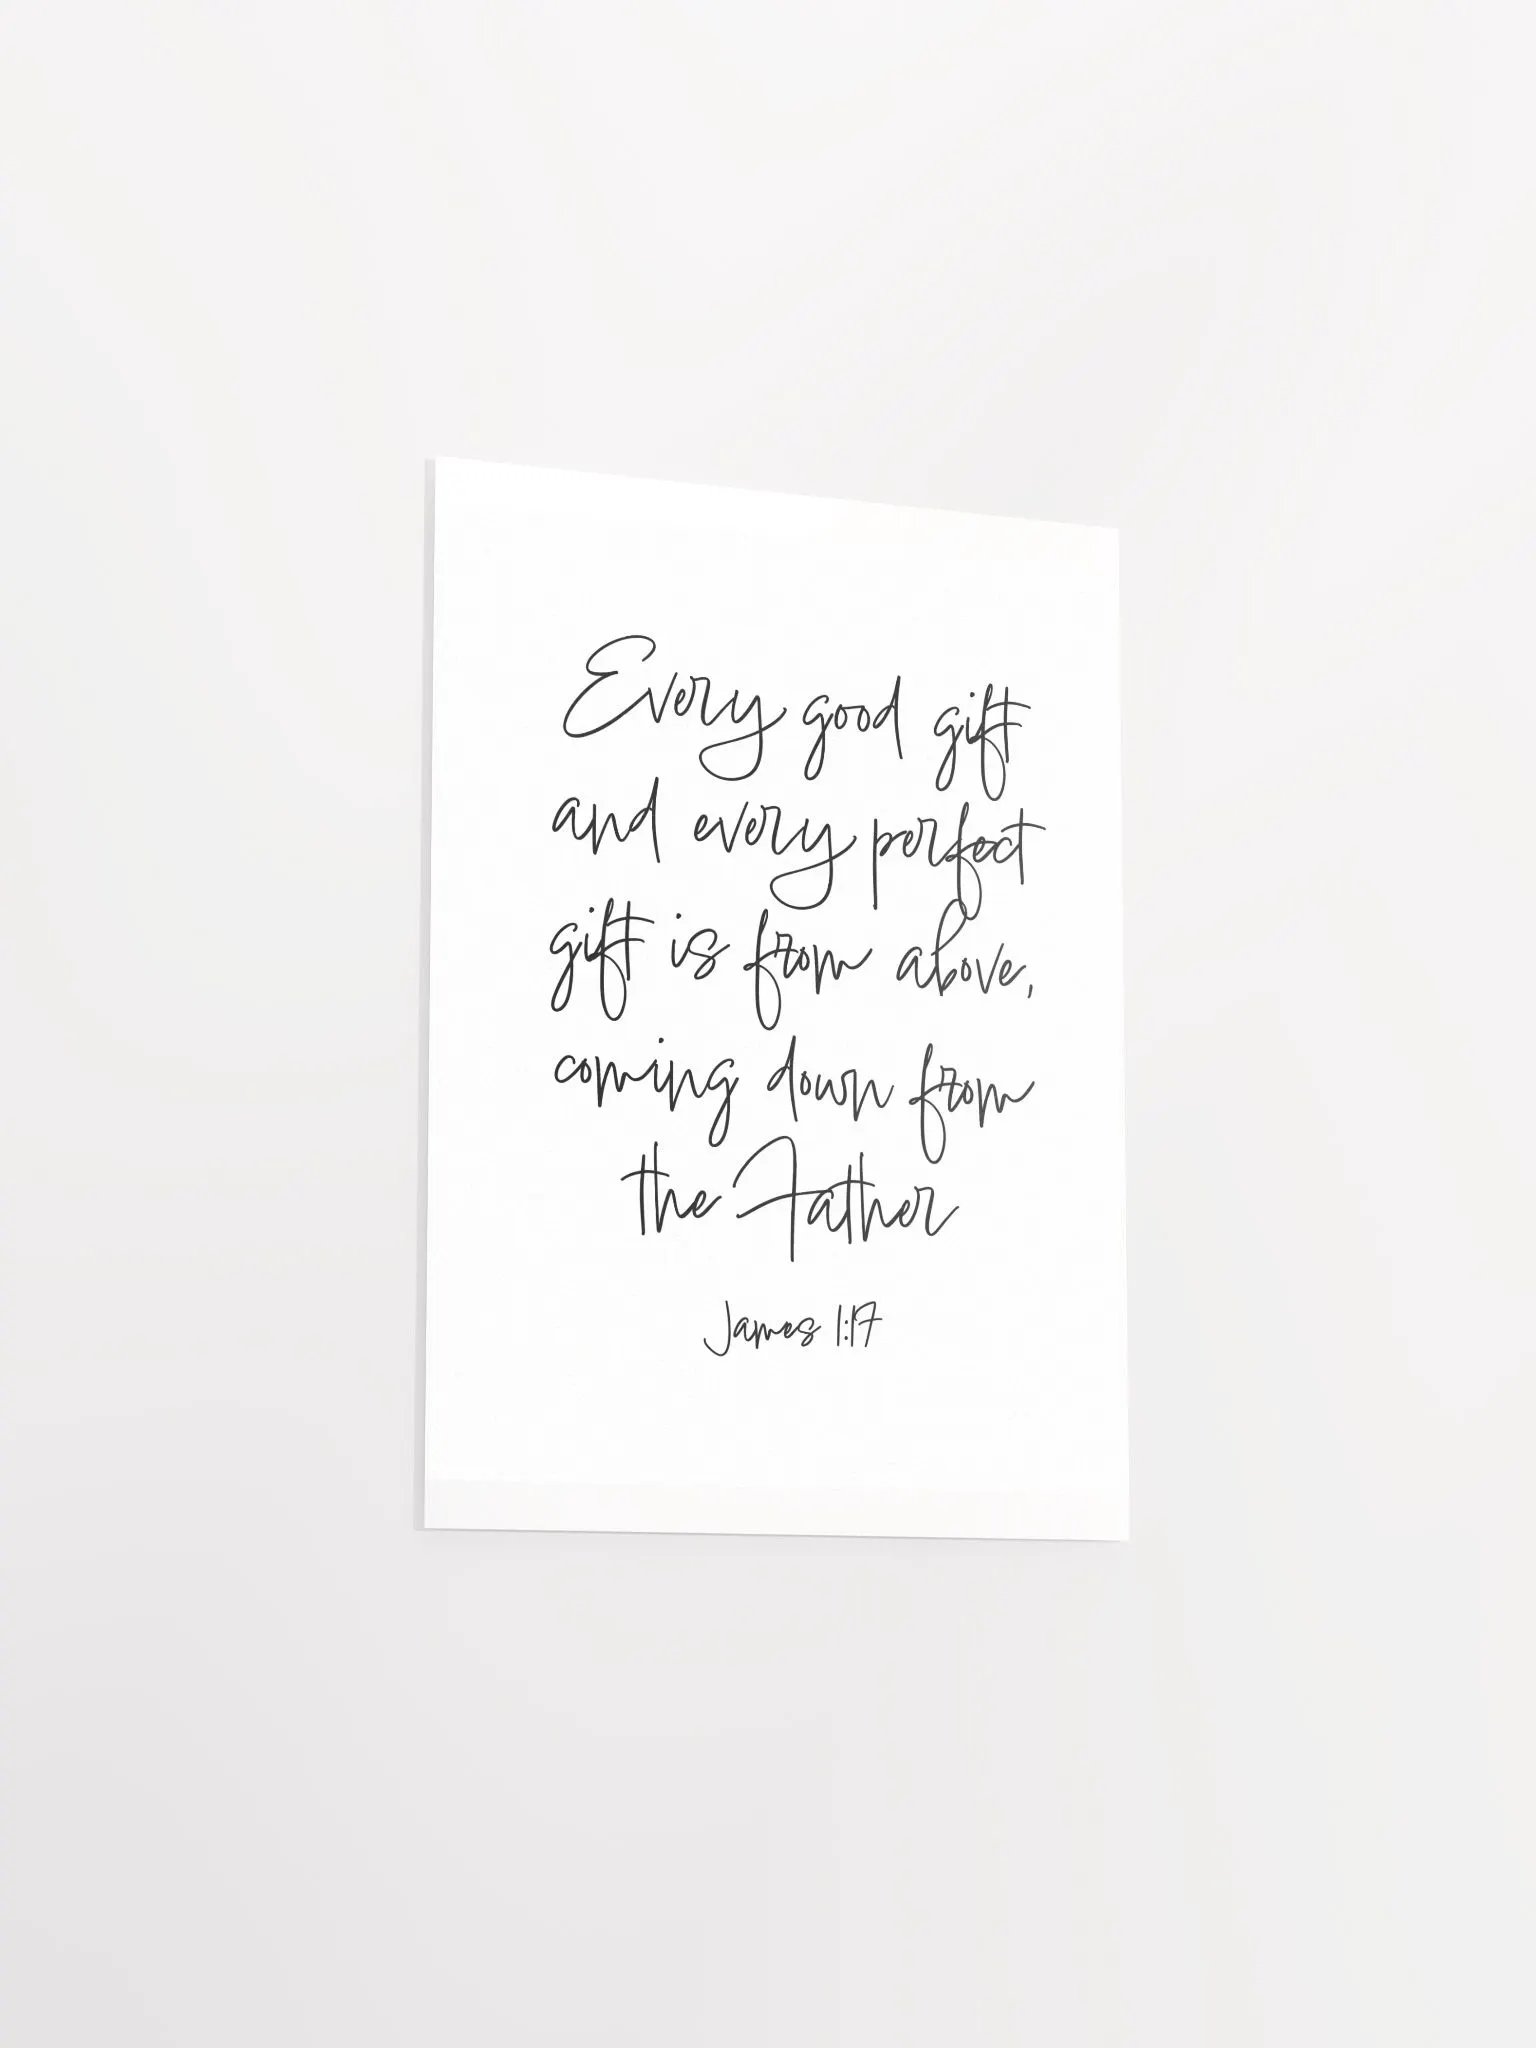 Every good gift
and every perfect
gift is from above,
coming down from
the Father
James 1:17